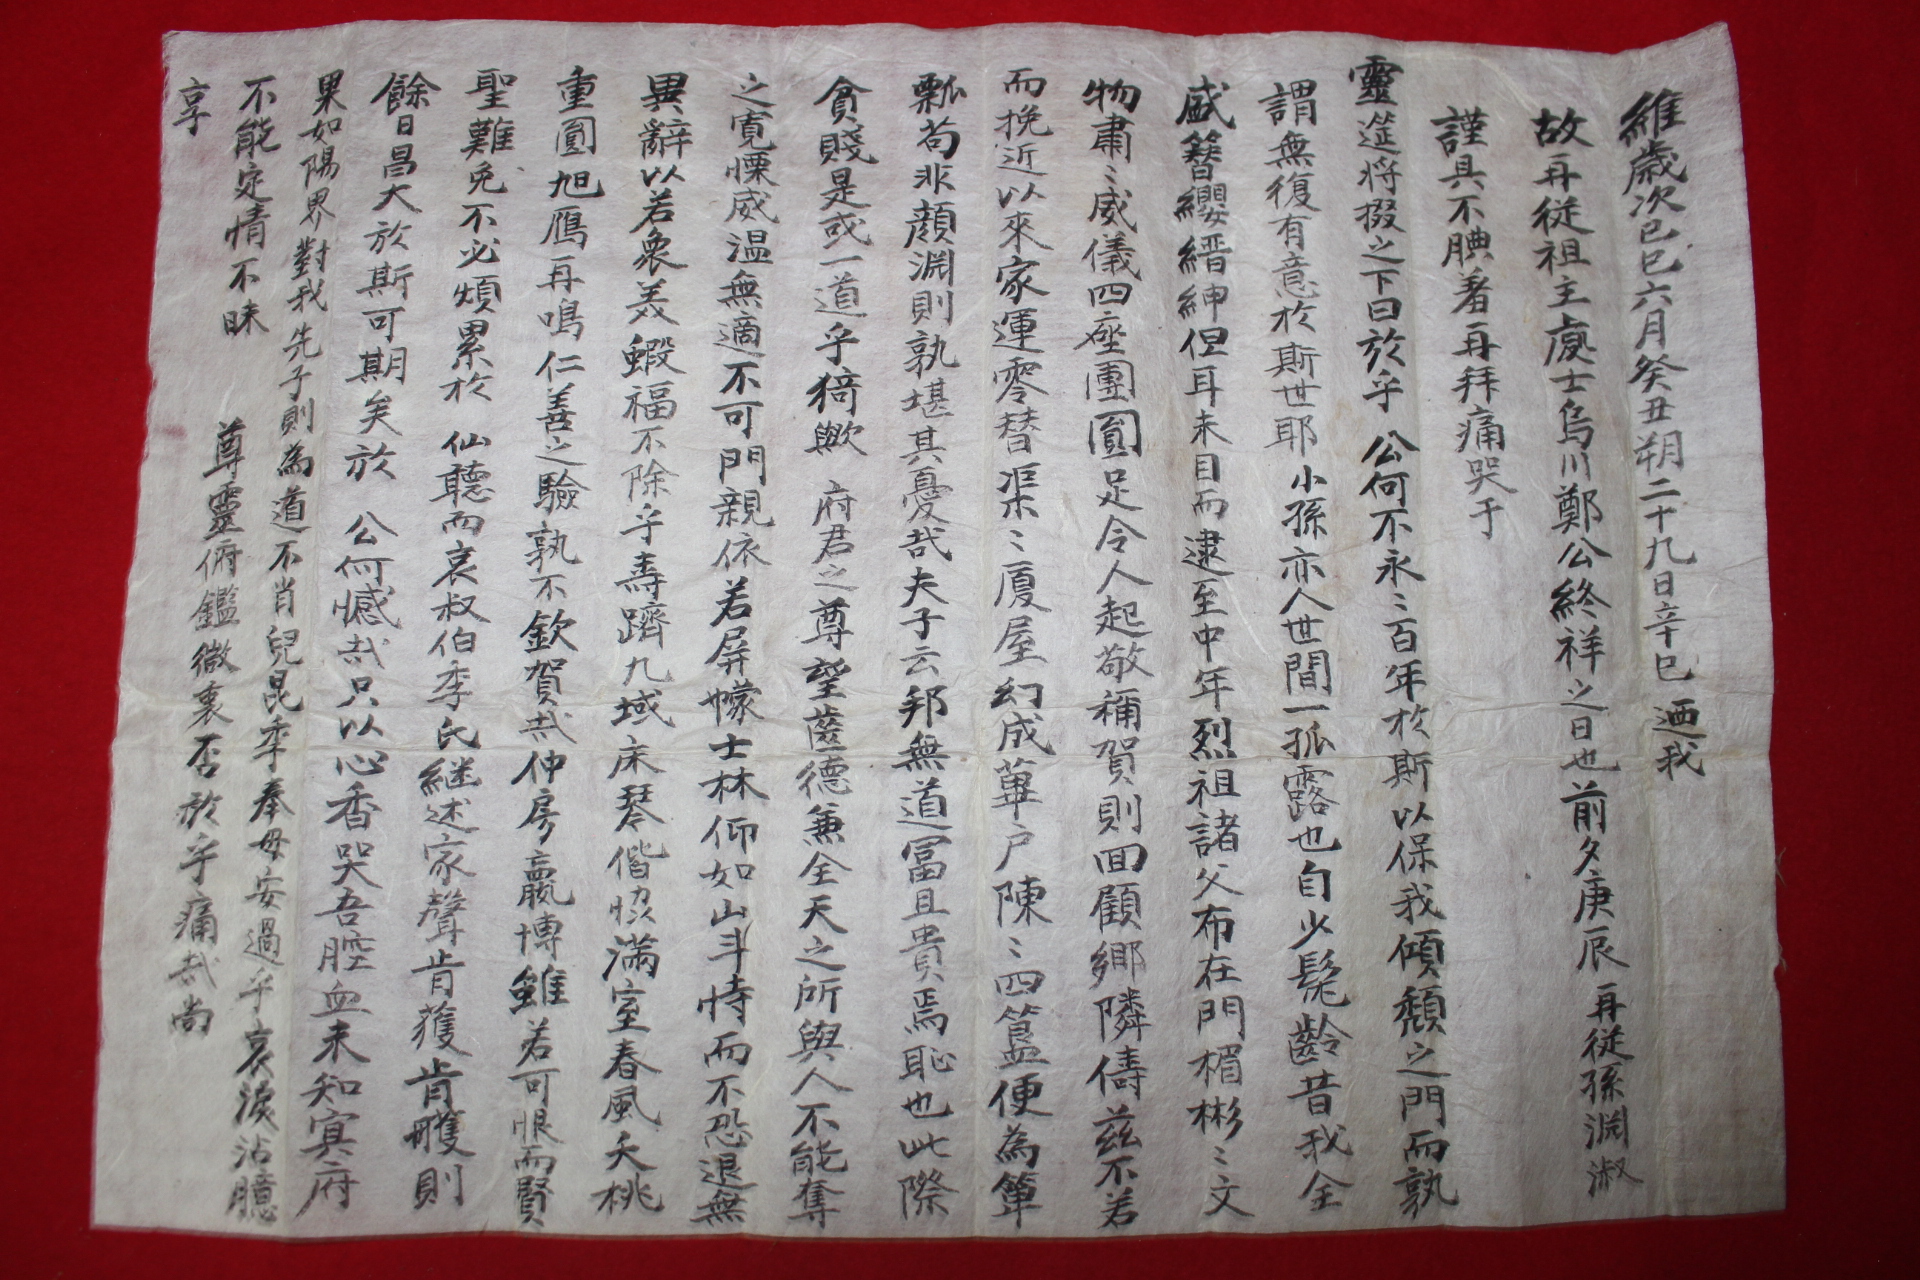 維歲次己巳六月癸丑朔二十九日辛巳 迺我
故再從祖主處士烏川鄭公終祥之日也前夕庚辰 再從孫淵淑
謹具不腆著再拜痛哭于
靈筵將掇之下曰於乎 公何不永〻百年於斯以保我傾頹之門而孰
謂無復有意於斯世耶 小孫亦人世間一孤露也自少髦齡昔我全
盛簪纓縉紳但耳未目而逮至中年烈祖諸父布在門楣彬〻文
物肅〻威儀四座團圓足令人起敬稱賀則回顧鄉隣儔玆不若
而挽近以來家運零替渠〻廈屋幻成蓽户陳〻四簋便為簞
瓢苟非顔淵則孰堪其憂哉夫子云邦無道冨且貴焉恥也此際
貧賤是或一道乎猗歟 府君之尊望齒德兼全天之所與人不能奪
之寬慄威温無適不可門親依若屏幪士林仰如山斗恃而不恐退無
異辭以若衆美蝦福不除乎壽躋九域床琴偕惔滿室春風夭桃
重圓旭鴈再鳴仁善之驗孰不欽賀哉仲房嬴博雖若可恨而賢
聖難免不必煩累於 仙聽而哀叔伯季氏繼述家聲肯獲肯艧則
餘日昌大於斯可期矣於 公何憾哉只以心香哭吾腔血未知㝠府
果如陽界對我先子則為道不肖兒昆季奉母安過乎哀淚沾臆
不能定情不昧 尊靈俯鑑微衷否於乎痛哉尚
享